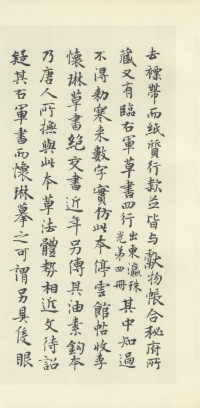 去褾帶而紙質行款並皆与獻物帳合秘府所
藏又有臨右軍草書四行出東瀛珠光第四冊其中知過
不得勑寒來數字實仿此本停雲館帖收李
懷琳草書絕交書近年另傳其油素鈎本
乃唐人所撫與此本草法體勢相近文待詔
疑其右軍書而懷琳摹之可謂另具隻眼